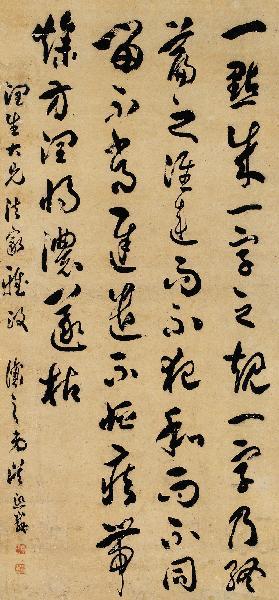 一點成一字之規一字乃終
篇之准違而不犯和而不同
留不常遲遣不恒疾帶
燥方潤將濃遂枯
潤生大兄法家雅政